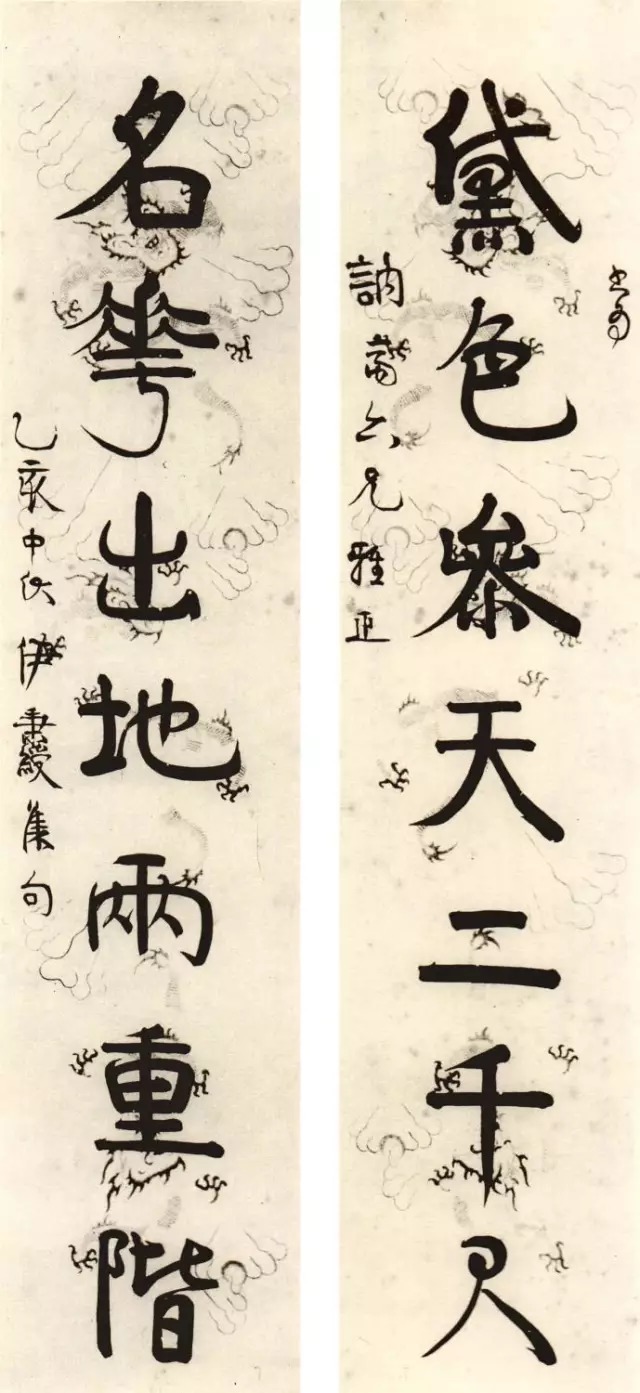 黛色參天二千尺
書為
訥菴六兄雅正
名華出地兩重階
乙亥中伏伊秉綬集句